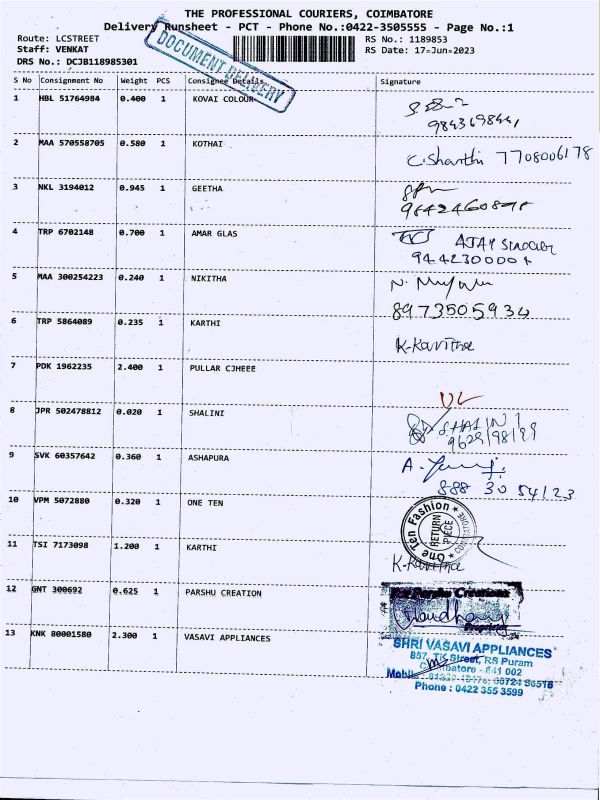 THE PROFESSIONAL COURIERS, COIMBATORE
Delivery Runsheet - PCT - Phone No.:0422-3505555 - Page No.:1
Route: LCSTREET RS No.: 1189853
Staff: VENKAT RS Date: 17-Jun-2023
DRS No.: DCJB118985301
DOCUMENT DELIVERY
S No Consignment No Weight PCS Consignee Details Signature
1 HBL 51764984 0.400 1 KOVAI COLOUR
2 MAA 570558705 0.580 1 KOTHAI C. Shanthi 7708006178
3 NKL 3194012 0.945 1 GEETHA
4 TRP 6702148 0.700 1 AMAR GLAS
5 MAA 300254223 0.240 1 NIKITHA 8973505934
6 TRP 5864089 0.235 1 KARTHI K-Kavitha
7 PDK 1962235 2.400 1 PULLAR CJHEEE
8 JPR 502478812 0.020 1 SHALINI SHALINI
9 SVK 60357642 0.360 1 ASHAPURA
10 VPM 5072880 0.320 1 ONE TEN One Ten Fashion RETURN PIECE COIMBATORE
11 TSI 7173098 1.200 1 KARTHI K-Kavitha
12 GNT 300692 0.625 1 PARSHU CREATION For Parshu Creations
Proprietor
13 KNK 80001580 2.300 1 VASAVI APPLIANCES SHRI VASAVI APPLIANCES
857, TK Street, RS Puram
Coimbatore - 641 002
Phone : 0422 355 3599